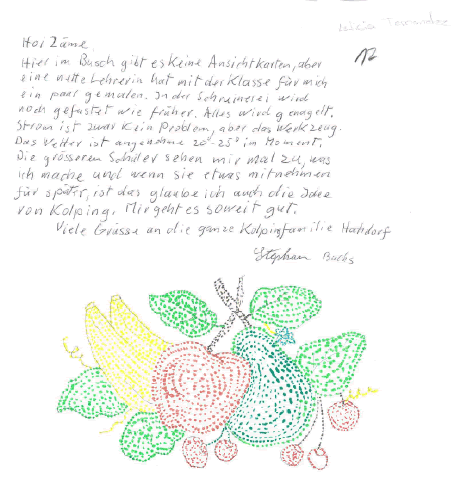 Hoi Zäme,
Hier im Busch gibt es keine Ansichtkarten, aber
eine nette Lehrerin hat mit der Klasse für mich
ein paar gemalen. In der Schreinerei wird
noch gefustet wie früher. Alles wird genagelt.
Strom ist zwar kein Problem, aber das Werkzeug.
Das Wetter ist angenehme 20°-25° im Moment.
Die grösseren Schüler sehen mir mal zu, was
ich mache und wenn sie etwas mitnehmen
für später, ist das glaube ich auch die Idee
von Kolping. Mir geht es soweit gut.
Viele Grüsse an die ganze Kolpingfamilie Hochdorf
Stephan